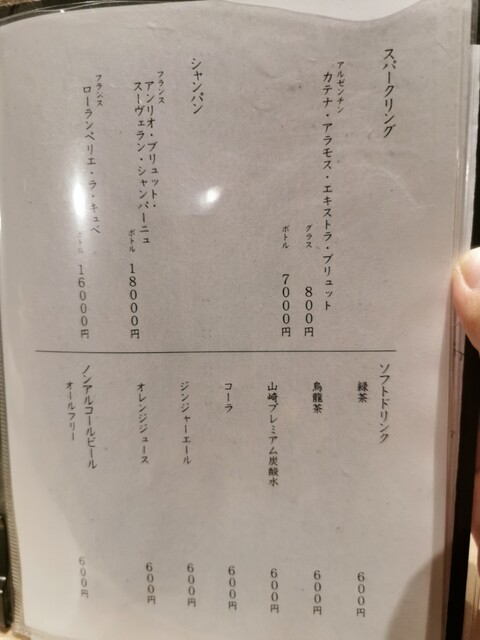 スパークリング
アルゼンチン
カテナ・アラモス・エキストラ・ブリュット
グラス 800円
ボトル 7000円
シャンパン
フランス
アンリオ・ブリュット・
スーヴェラン・シャンパーニュ
ボトル 18000円
フランス
ローランペリエ・ラ・キュベ
ボトル 16000円
ソフトドリンク
緑茶 600円
烏龍茶 600円
山崎プレミアム炭酸水 600円
コーラ 600円
ジンジャーエール 600円
オレンジジュース 600円
ノンアルコールビール
オールフリー 600円